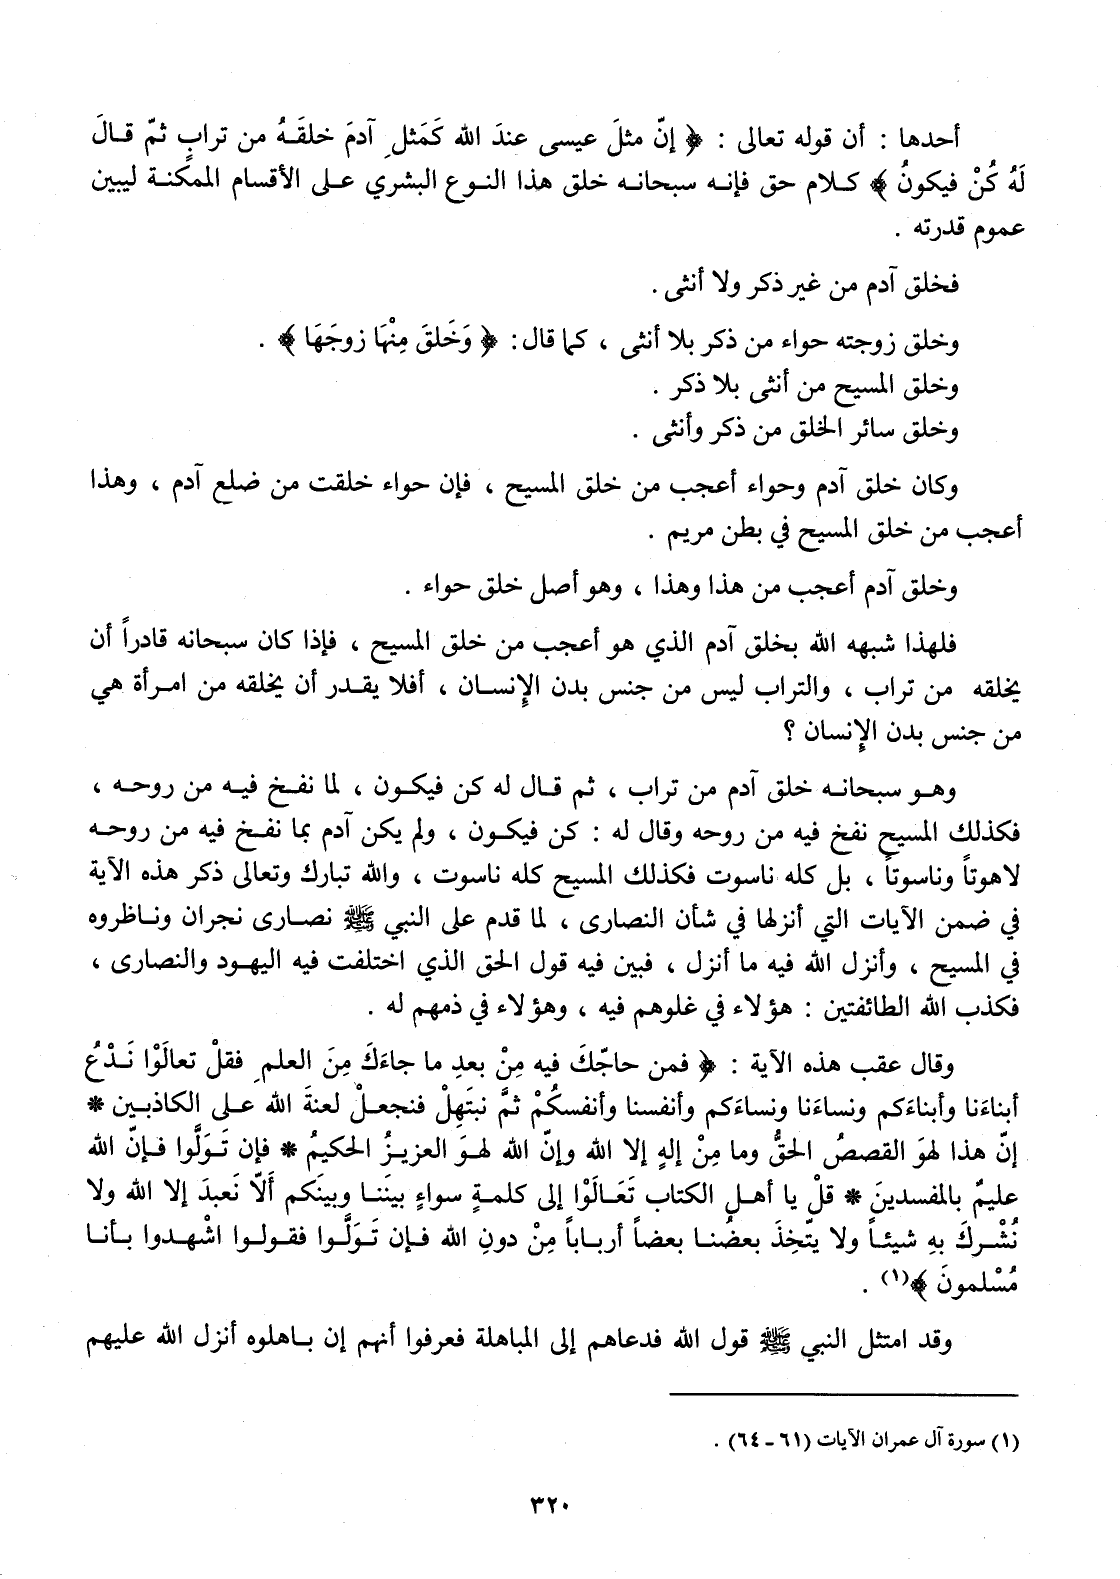 أحدها : أن قوله تعالى : ﴿ إنّ مثلَ عيسى عندَ الله كَمَثلِ آدمَ خلقَهُ من ترابٍ ثمّ قالَ
لَهُ كُنْ فيكونُ ﴾ كلام حق فإنه سبحانه خلق هذا النوع البشري على الأقسام الممكنة ليبين
عموم قدرته .
فخلق آدم من غير ذكر ولا أنثى .
وخلق زوجته حواء من ذكر بلا أنثى ، كما قال : ﴿ وَخَلقَ مِنْهَا زوجَهَا ﴾ .
وخلق المسيح من أنثى بلا ذكر .
وخلق سائر الخلق من ذكر وأنثى .
وكان خلق آدم وحواء أعجب من خلق المسيح ، فإن حواء خلقت من ضلع آدم ، وهذا
أعجب من خلق المسيح في بطن مريم .
وخلق آدم أعجب من هذا وهذا ، وهو أصل خلق حواء .
فلهذا شبهه الله بخلق آدم الذي هو أعجب من خلق المسيح ، فإذا كان سبحانه قادراً أن
يخلقه من تراب ، والتراب ليس من جنس بدن الإنسان ، أفلا يقدر أن يخلقه من امرأة هي
من جنس بدن الإنسان ؟
وهو سبحانه خلق آدم من تراب ، ثم قال له كن فيكون ، لما نفخ فيه من روحه ،
فكذلك المسيح نفخ فيه من روحه وقال له : كن فيكون ، ولم يكن آدم بما نفخ فيه من روحه
لاهوتاً وناسوتاً ، بل كله ناسوت فكذلك المسيح كله ناسوت ، والله تبارك وتعالى ذكر هذه الآية
في ضمن الآيات التي أنزلها في شأن النصارى ، لما قدم على النبي ﷺ نصارى نجران وناظروه
في المسيح ، وأنزل الله فيه ما أنزل ، فبين فيه قول الحق الذي اختلفت فيه اليهود والنصارى ،
فكذب الله الطائفتين : هؤلاء في غلوهم فيه ، وهؤلاء في ذمهم له .
وقال عقب هذه الآية : ﴿ فمن حاجّكَ فيه مِنْ بعدِ ما جاءَكَ مِنَ العلمِ فقلْ تعالَوْا نَدْعُ
أبناءَنا وأبناءَكم ونساءَنا ونساءَكم وأنفسنا وأنفسكُمْ ثمَّ نبتَهِلْ فنجعلْ لعنةَ الله على الكاذبين *
إنّ هذا لهوَ القصصُ الحقُّ وما مِنْ إلهٍ إلا الله وإنّ الله لهوَ العزيزُ الحكيمُ * فإن تَوَلَّوا فإنّ الله
عليمٌ بالمفسدينَ * قلْ يا أهل الكتاب تَعَالَوْا إلى كلمةٍ سواءٍ بينَنا وبينَكم ألاّ نَعبدَ إلا الله ولا
نُشْركَ بهِ شيئاً ولا يتّخِذَ بعضُنا بعضاً أرباباً مِنْ دونِ الله فإن تَوَلَّوا فقولوا اشْهدوا بأنا
مُسْلمونَ ﴾(١) .
وقد امتثل النبي ﷺ قول الله فدعاهم إلى المباهلة فعرفوا أنهم إن باهلوه أنزل الله عليهم
(١) سورة آل عمران الآيات (٦١ - ٦٤) .
٣٢٠